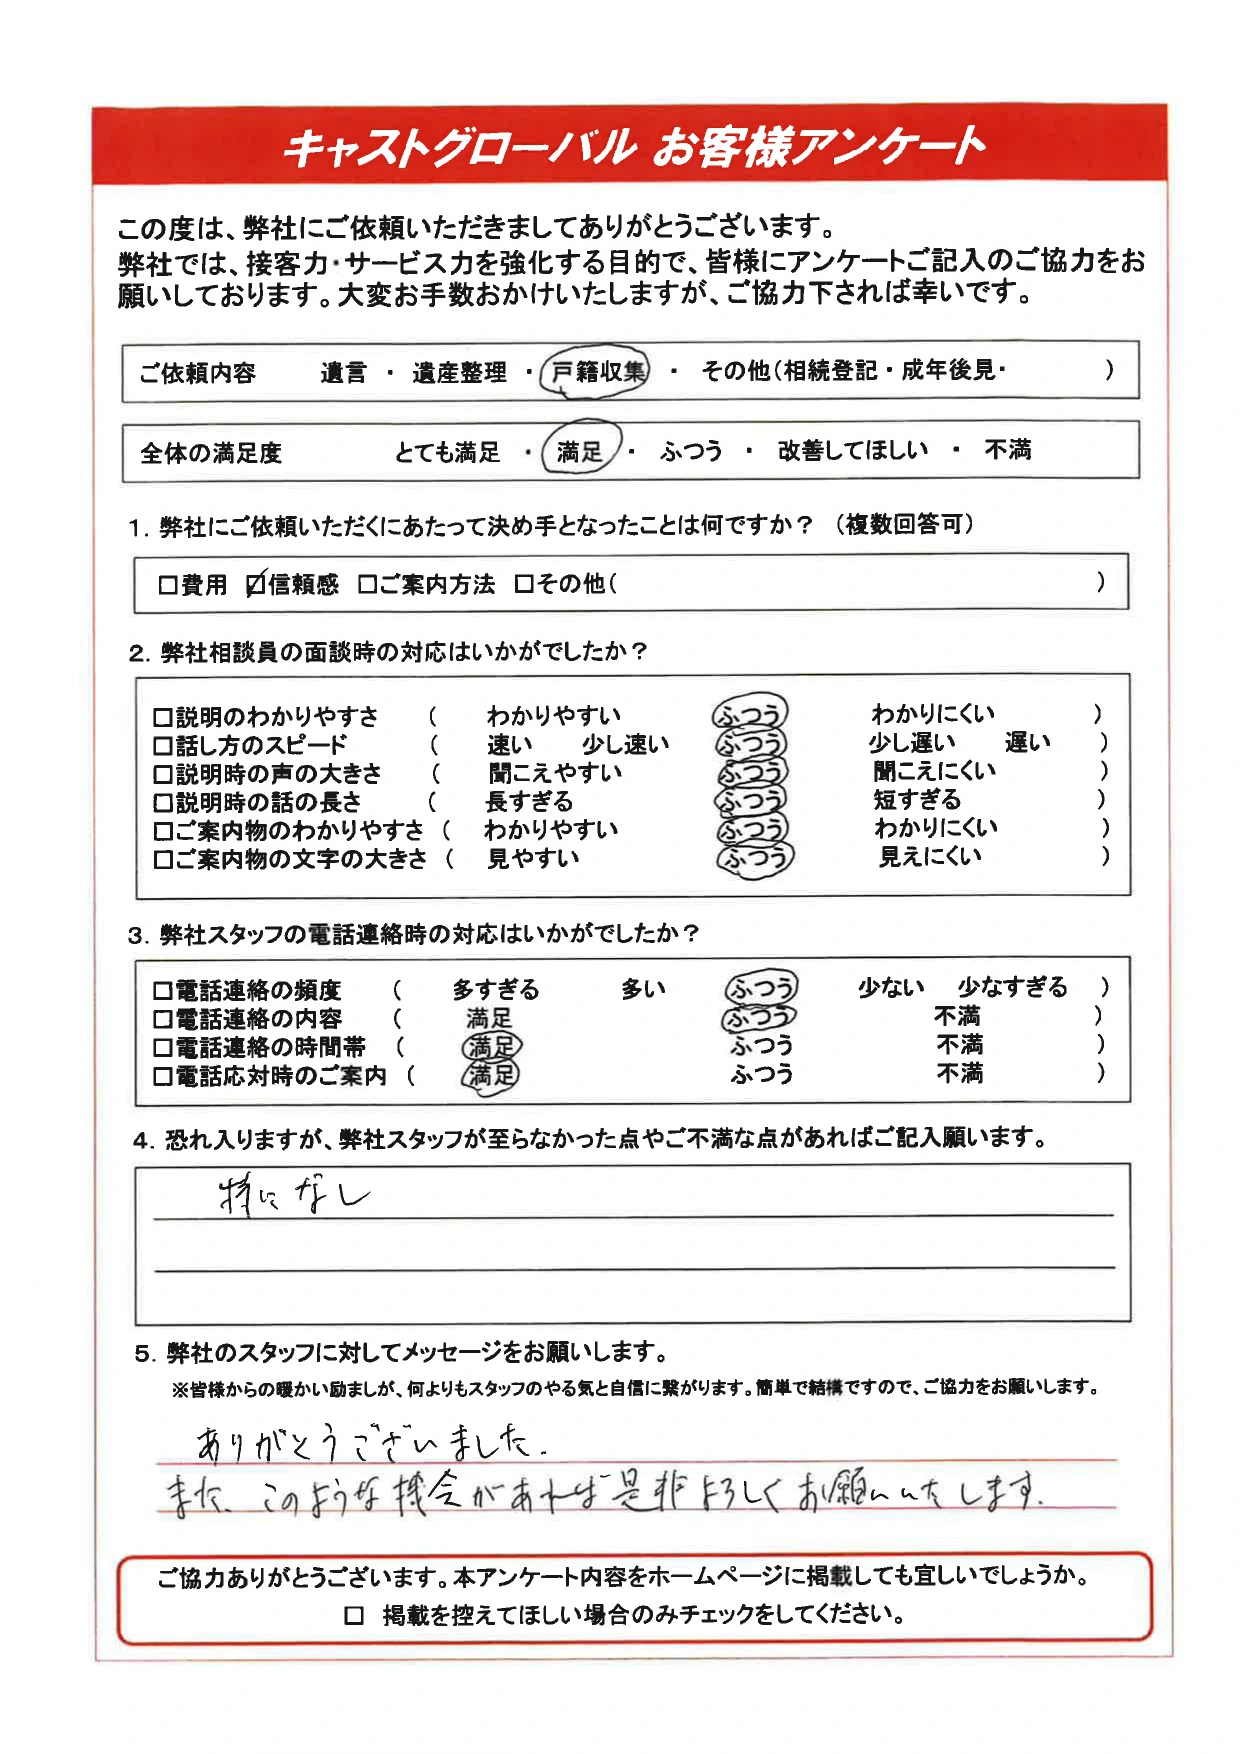 キャストグローバル お客様アンケート
この度は、弊社にご依頼いただきましてありがとうございます。
弊社では、接客力・サービス力を強化する目的で、皆様にアンケートご記入のご協力をお
願いしております。大変お手数おかけいたしますが、ご協力下されば幸いです。
ご依頼内容 遺言 ・ 遺産整理 ・ 戸籍収集 ・ その他(相続登記・成年後見・ )
全体の満足度 とても満足 ・ 満足 ・ ふつう ・ 改善してほしい ・ 不満
1. 弊社にご依頼いただくにあたって決め手となったことは何ですか？ (複数回答可)
□費用 ☑信頼感 □ご案内方法 □その他( )
2. 弊社相談員の面談時の対応はいかがでしたか？
□説明のわかりやすさ ( わかりやすい ふつう わかりにくい )
□話し方のスピード ( 速い 少し速い ふつう 少し遅い 遅い )
□説明時の声の大きさ ( 聞こえやすい ふつう 聞こえにくい )
□説明時の話の長さ ( 長すぎる ふつう 短すぎる )
□ご案内物のわかりやすさ ( わかりやすい ふつう わかりにくい )
□ご案内物の文字の大きさ ( 見やすい ふつう 見えにくい )
3. 弊社スタッフの電話連絡時の対応はいかがでしたか？
□電話連絡の頻度 ( 多すぎる 多い ふつう 少ない 少なすぎる )
□電話連絡の内容 ( 満足 ふつう 不満 )
□電話連絡の時間帯 ( 満足 ふつう 不満 )
□電話応対時のご案内 ( 満足 ふつう 不満 )
4. 恐れ入りますが、弊社スタッフが至らなかった点やご不満な点があればご記入願います。
特になし
5. 弊社のスタッフに対してメッセージをお願いします。
※皆様からの暖かい励ましが、何よりもスタッフのやる気と自信に繋がります。簡単で結構ですので、ご協力をお願いします。
ありがとうございました.
また、このような機会があれば是非よろしくお願いいたします.
ご協力ありがとうございます。本アンケート内容をホームページに掲載しても宜しいでしょうか。
□ 掲載を控えてほしい場合のみチェックをしてください。